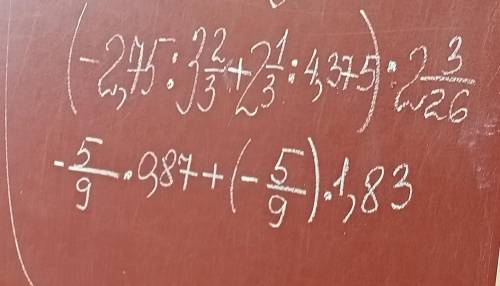 (-2,75:3 2/3+2 1/3:4,375):2 3/26
-5/9·0,87+(-5/9)·1,83